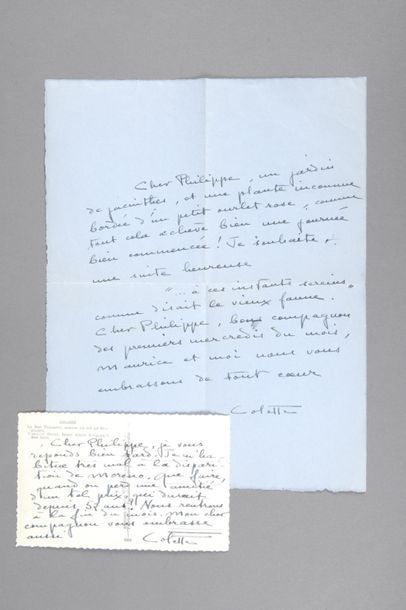 Cher Philippe, un jardin
de jacinthes, et une plante inconnue
bordée d'un petit ourlet rose, comme
tout cela achève bien une journée
bien commencée ! Je souhaite
une suite heureuse
"... à ces instants sereins"
comme disait le vieux faune.
Cher Philippe, bons compagnon
des premiers mercredis du mois,
Maurice et moi nous vous
embrassons de tout cœur
Colette
Cher Philippe, je vous
réponds bien tard. Je m'ha-
bitue très mal à la dispari-
tion de Moreno. Que faire,
quand on perd une amitié
d'un tel prix, qui durait
depuis 52 ans ? Nous rentrons
à la fin du mois. Mon cher
compagnon vous embrasse
aussi
Colette